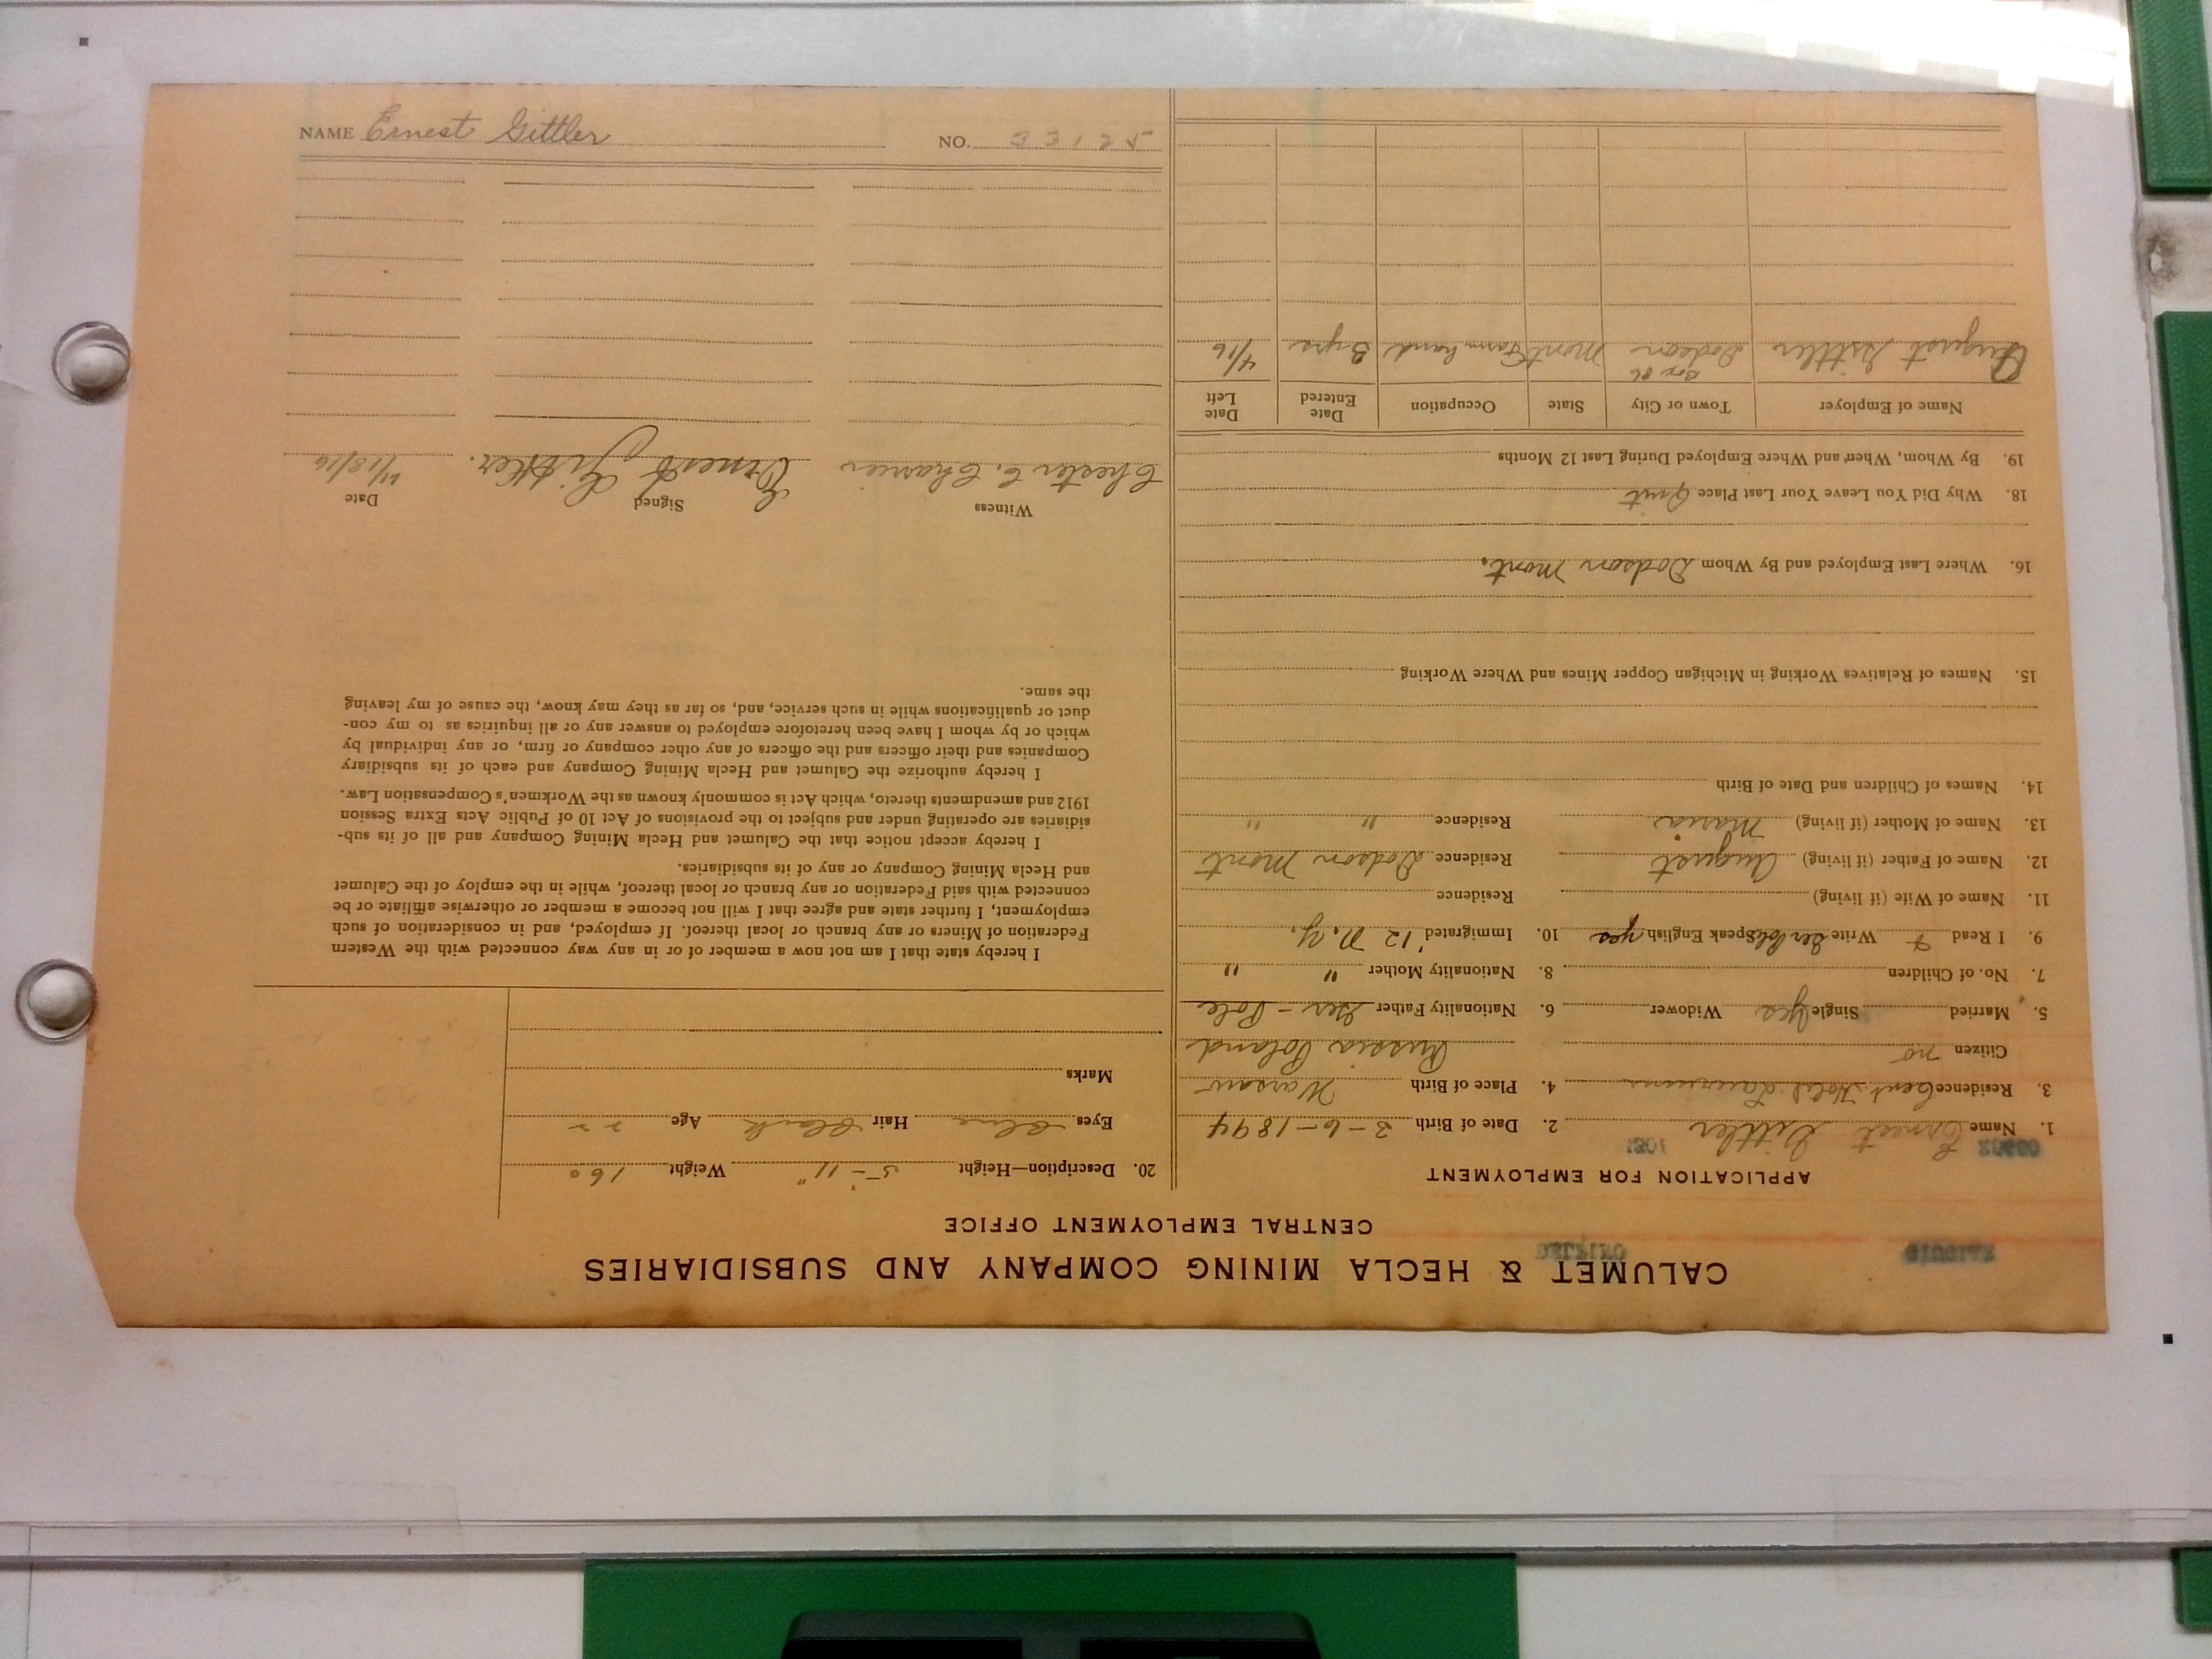 NAME Ernest Gittler NO. 33125
CALUMET & HECLA MINING COMPANY AND SUBSIDIARIES
CENTRAL EMPLOYMENT OFFICE
APPLICATION FOR EMPLOYMENT
1. Name Ernest Gittler 2. Date of Birth 3-6-1894
3. Residence Cent Hotel Laurium 4. Place of Birth Warsaw
Citizen no Russia Poland
5. Married Single yes Widower 6. Nationality Father Ger-Pole
7. No. of Children 8. Nationality Mother " "
9. I Read + Write Ger Pole Speak English yes 10. Immigrated '12 N.Y.
11. Name of Wife (if living) Residence
12. Name of Father (if living) August Residence Dodson Mont
13. Name of Mother (if living) Maria Residence " "
14. Names of Children and Date of Birth
15. Names of Relatives Working in Michigan Copper Mines and Where Working
16. Where Last Employed and By Whom Dodson Mont.
18. Why Did You Leave Your Last Place Quit
19. By Whom, When and Where Employed During Last 12 Months
Name of Employer Town or City State Occupation Date Entered Date Left
August Gittler Box 86 Dodson Mont Farm hand 3 yrs 4/16
20. Description—Height 5'-11" Weight 160
Eyes Blue Hair Black Age 22
Marks
I hereby state that I am not now a member of or in any way connected with the Western
Federation of Miners or any branch or local thereof. If employed, and in consideration of such
employment, I further state and agree that I will not become a member or otherwise affiliate or be
connected with said Federation or any branch or local thereof, while in the employ of the Calumet
and Hecla Mining Company or any of its subsidiaries.
I hereby accept notice that the Calumet and Hecla Mining Company and all of its sub-
sidiaries are operating under and subject to the provisions of Act 10 of Public Acts Extra Session
1912 and amendments thereto, which Act is commonly known as the Workmen's Compensation Law.
I hereby authorize the Calumet and Hecla Mining Company and each of its subsidiary
Companies and their officers and the officers of any other company or firm, or any individual by
which or by whom I have been heretofore employed to answer any or all inquiries as to my con-
duct or qualifications while in such service, and, so far as they may know, the cause of my leaving
the same.
Witness Signed Date
Chester E. Ernest Gittler. /18/16